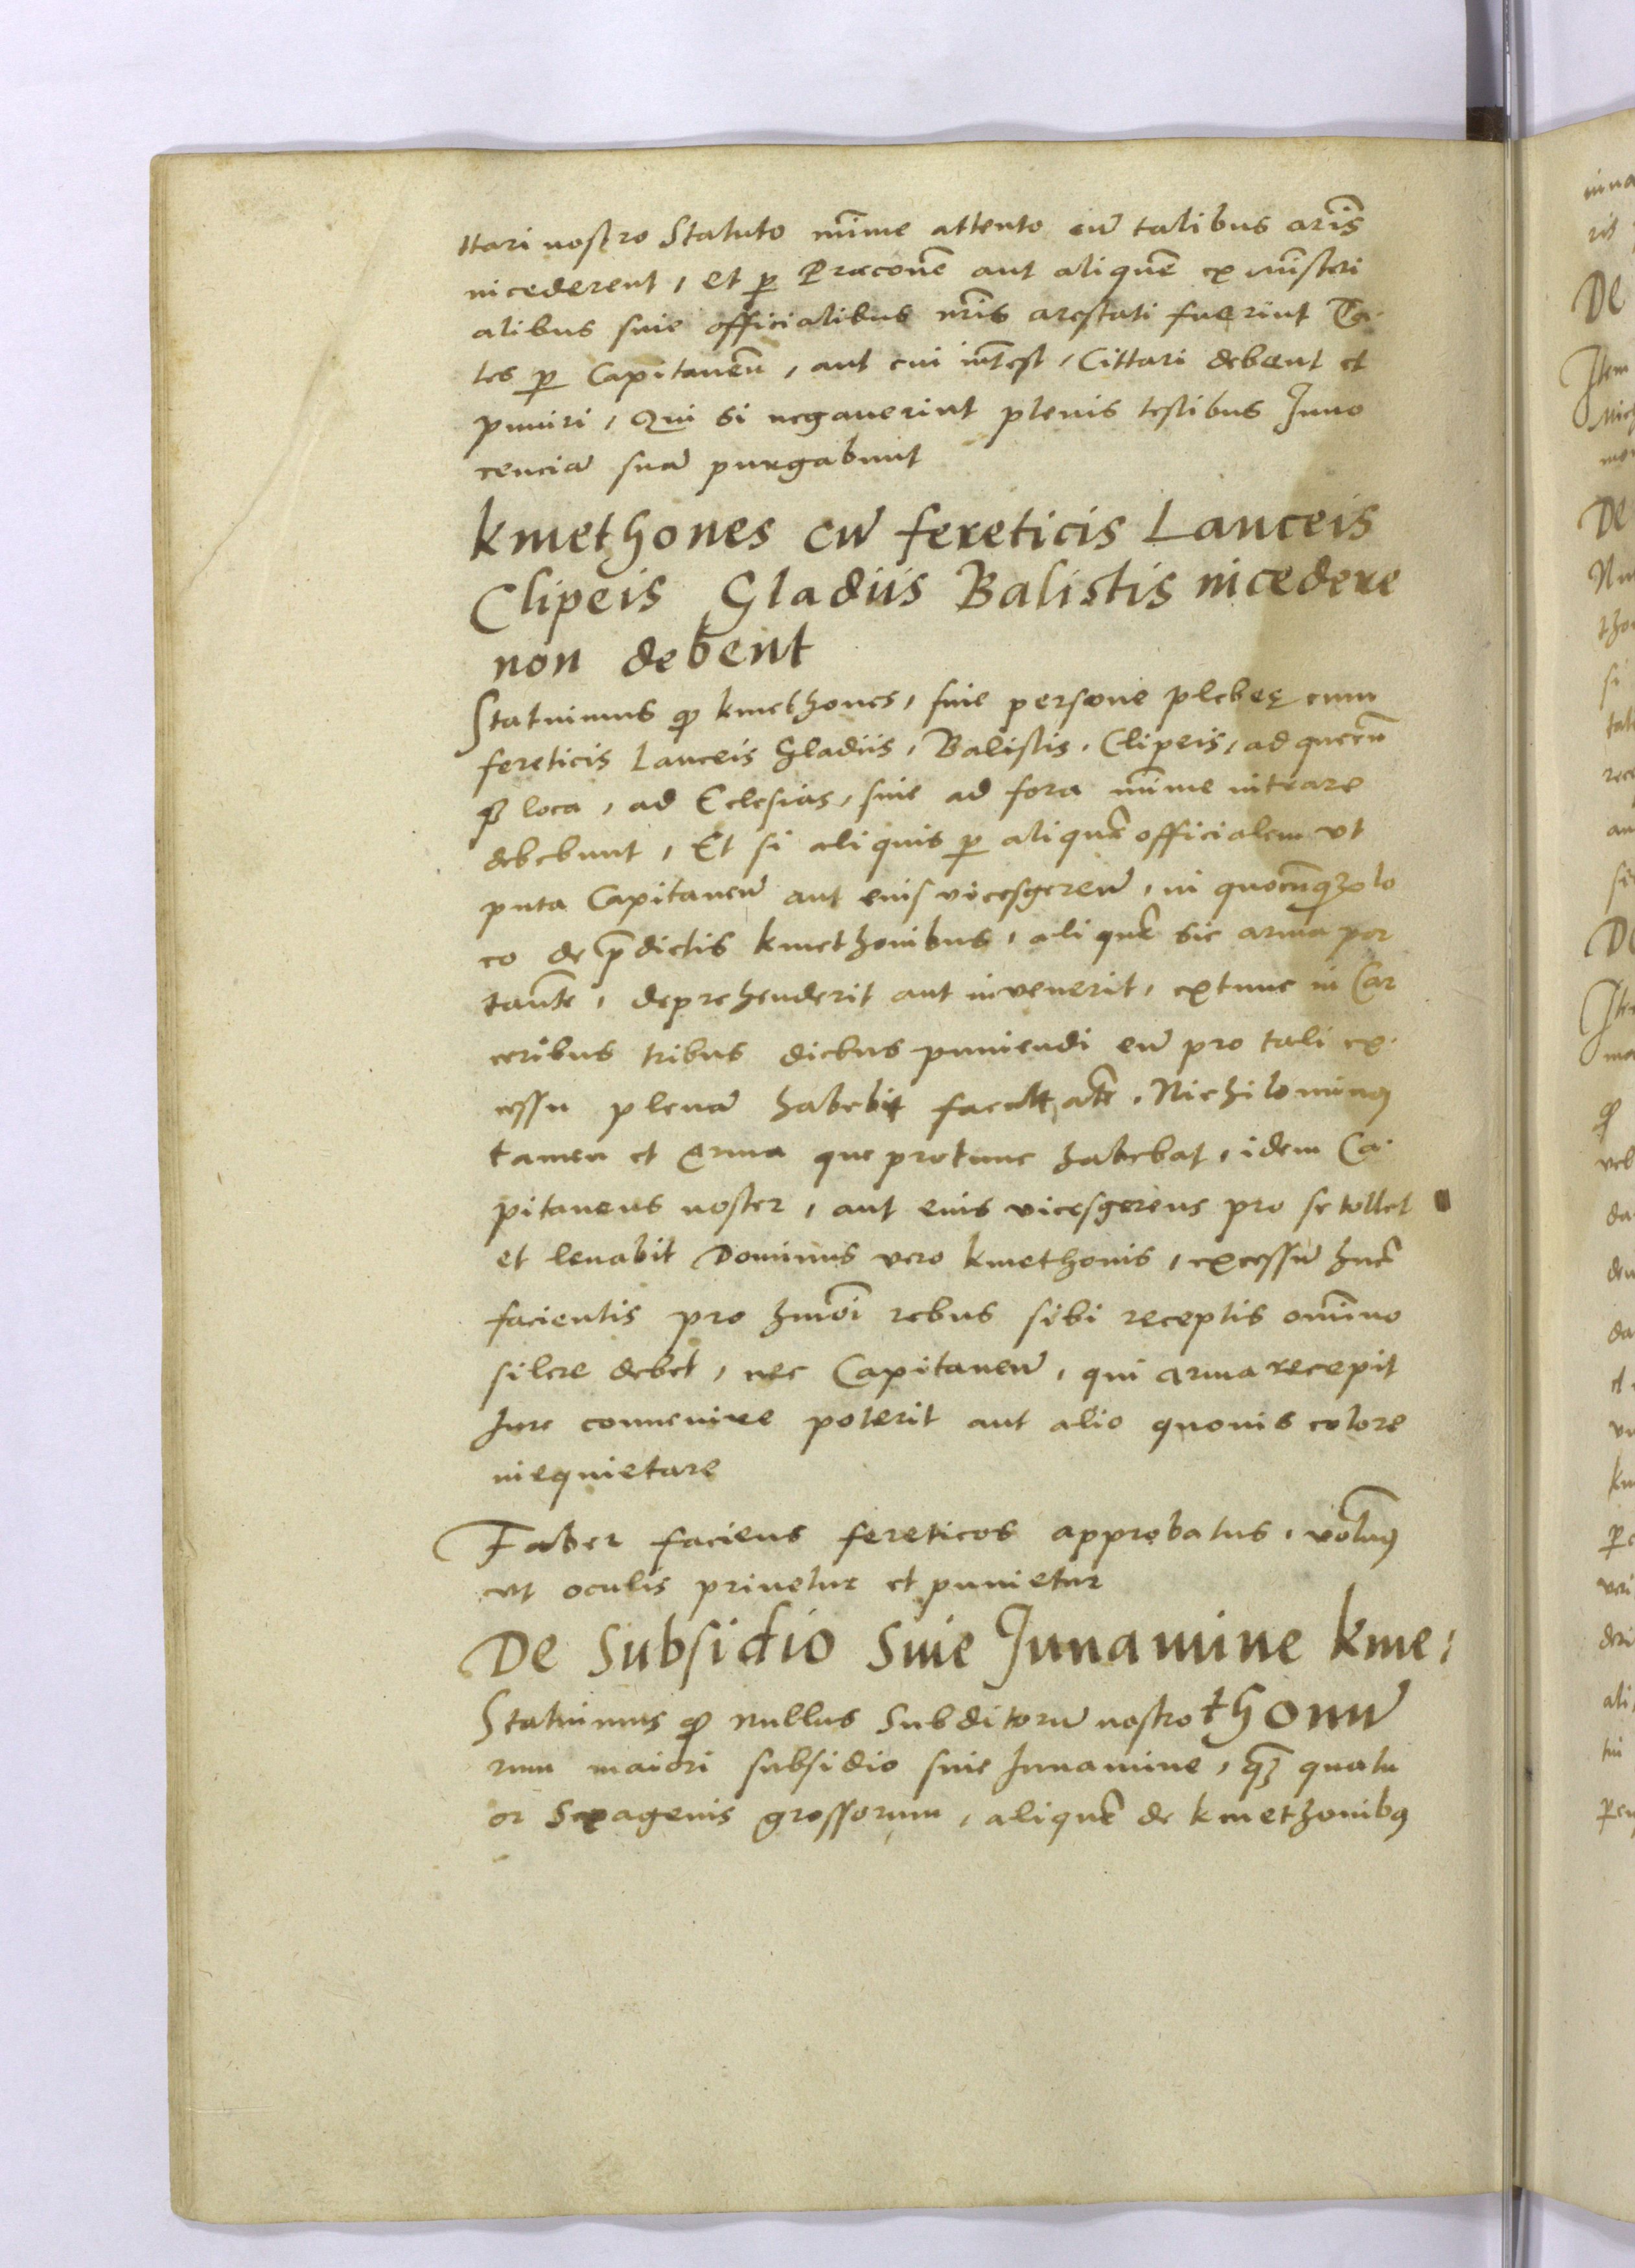 ttari nostro Statuto mīme attento cū talibus arīs
incederent, et ꝑ Præconē aut aliquē ex miīsteri
alibus siue officialibus nr̄is arestati fuerint Ta·
les ꝑ Capitaneū, aut cui īntest, Cittari debent et
puniri, Qui si negauerint plenis testibus Inno
cenciā suā purgabunt
kmethones cū fereticis Lanceis
Clipeis Gladiis Balistis incedere
non debent
Statuimus ꝙ kmethones, siue persone plebeę cum
fereticis Lanceis Gladiis, Balistis, Clipeis, ad quecū
qꝫ loca, ad Eclesias, siue ad fora mīme intrare
debebunt, Et si aliquis ꝑ aliquē officialem vt
puta Capitaneū aut eius vicesgerenū, in quocūqꝫ lo
co de p̄dictis kmethonibus, aliquē sic arma por
tantē, deprehenderit aut invenerit, extunc in Car
ceribus tribus diebus puniendi eū pro tali ex·
cessu plenā habebit facultatē. Nichilominꝰ
tamen et arma que protunc habebat, idem Ca·
pitaneus noster, aut eius vicesgerens pro se tollet
et leuabit Dominus vero kmethonis, excessū hūc
facientis pro hmōi rebus sibi receptis omīno
silere debet, nec Capitaneū, qui arma recepit
Iure conuenire poterit aut alio quouis colore
inequietare
Faber faciens fereticos approbatus, volumꝰ
vt oculis priuetur et punietur
De Subsidio Siue Iuuamine kme,
Statuimus ꝙ nullus Subditorū nostro thonū
rum maiori subsidio siue Iuuamine, qꝫ quatu
or Sexagenis grossorum, aliquē de kmethonibꝰ